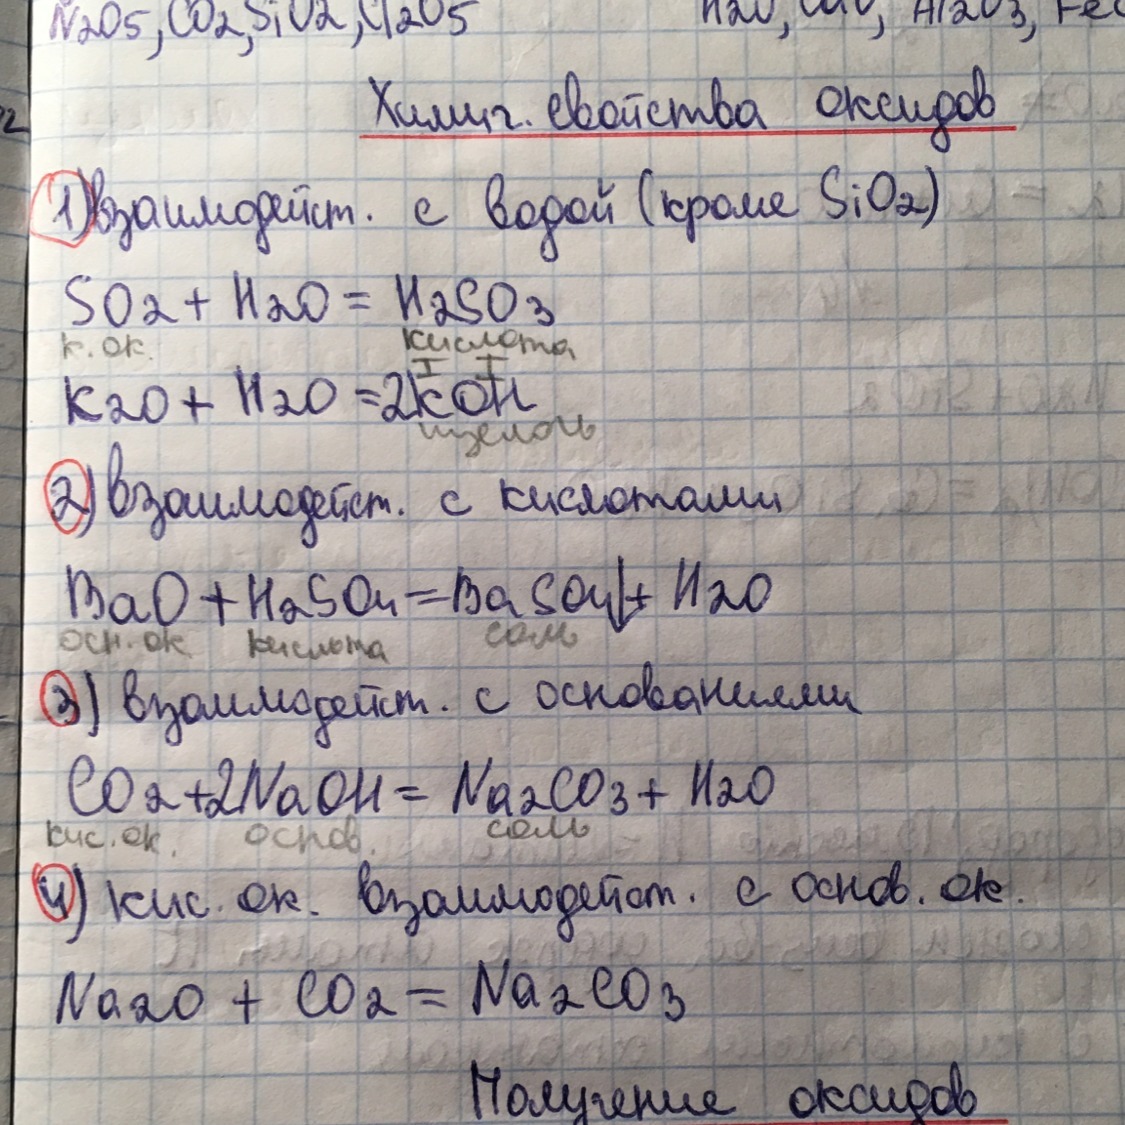 N2O5, CO2, SiO2, Cl2O5 H2O, CaO, Al2O3, FeO
Химич. свойства оксидов
1) взаимодейст. с водой (кроме SiO2)
SO2 + H2O = H2SO3
к. ок. кислота
I I
K2O + H2O = 2KOH
щелочь
2) взаимодейст. с кислотами
BaO + H2SO4 = BaSO4↓ + H2O
осн. ок. кислота соль
3) взаимодейст. с основаниями
CO2 + 2NaOH = Na2CO3 + H2O
кис. ок. основ. соль
4) кис. ок. взаимодейст. с основ. ок.
Na2O + CO2 = Na2CO3
Получение оксидов